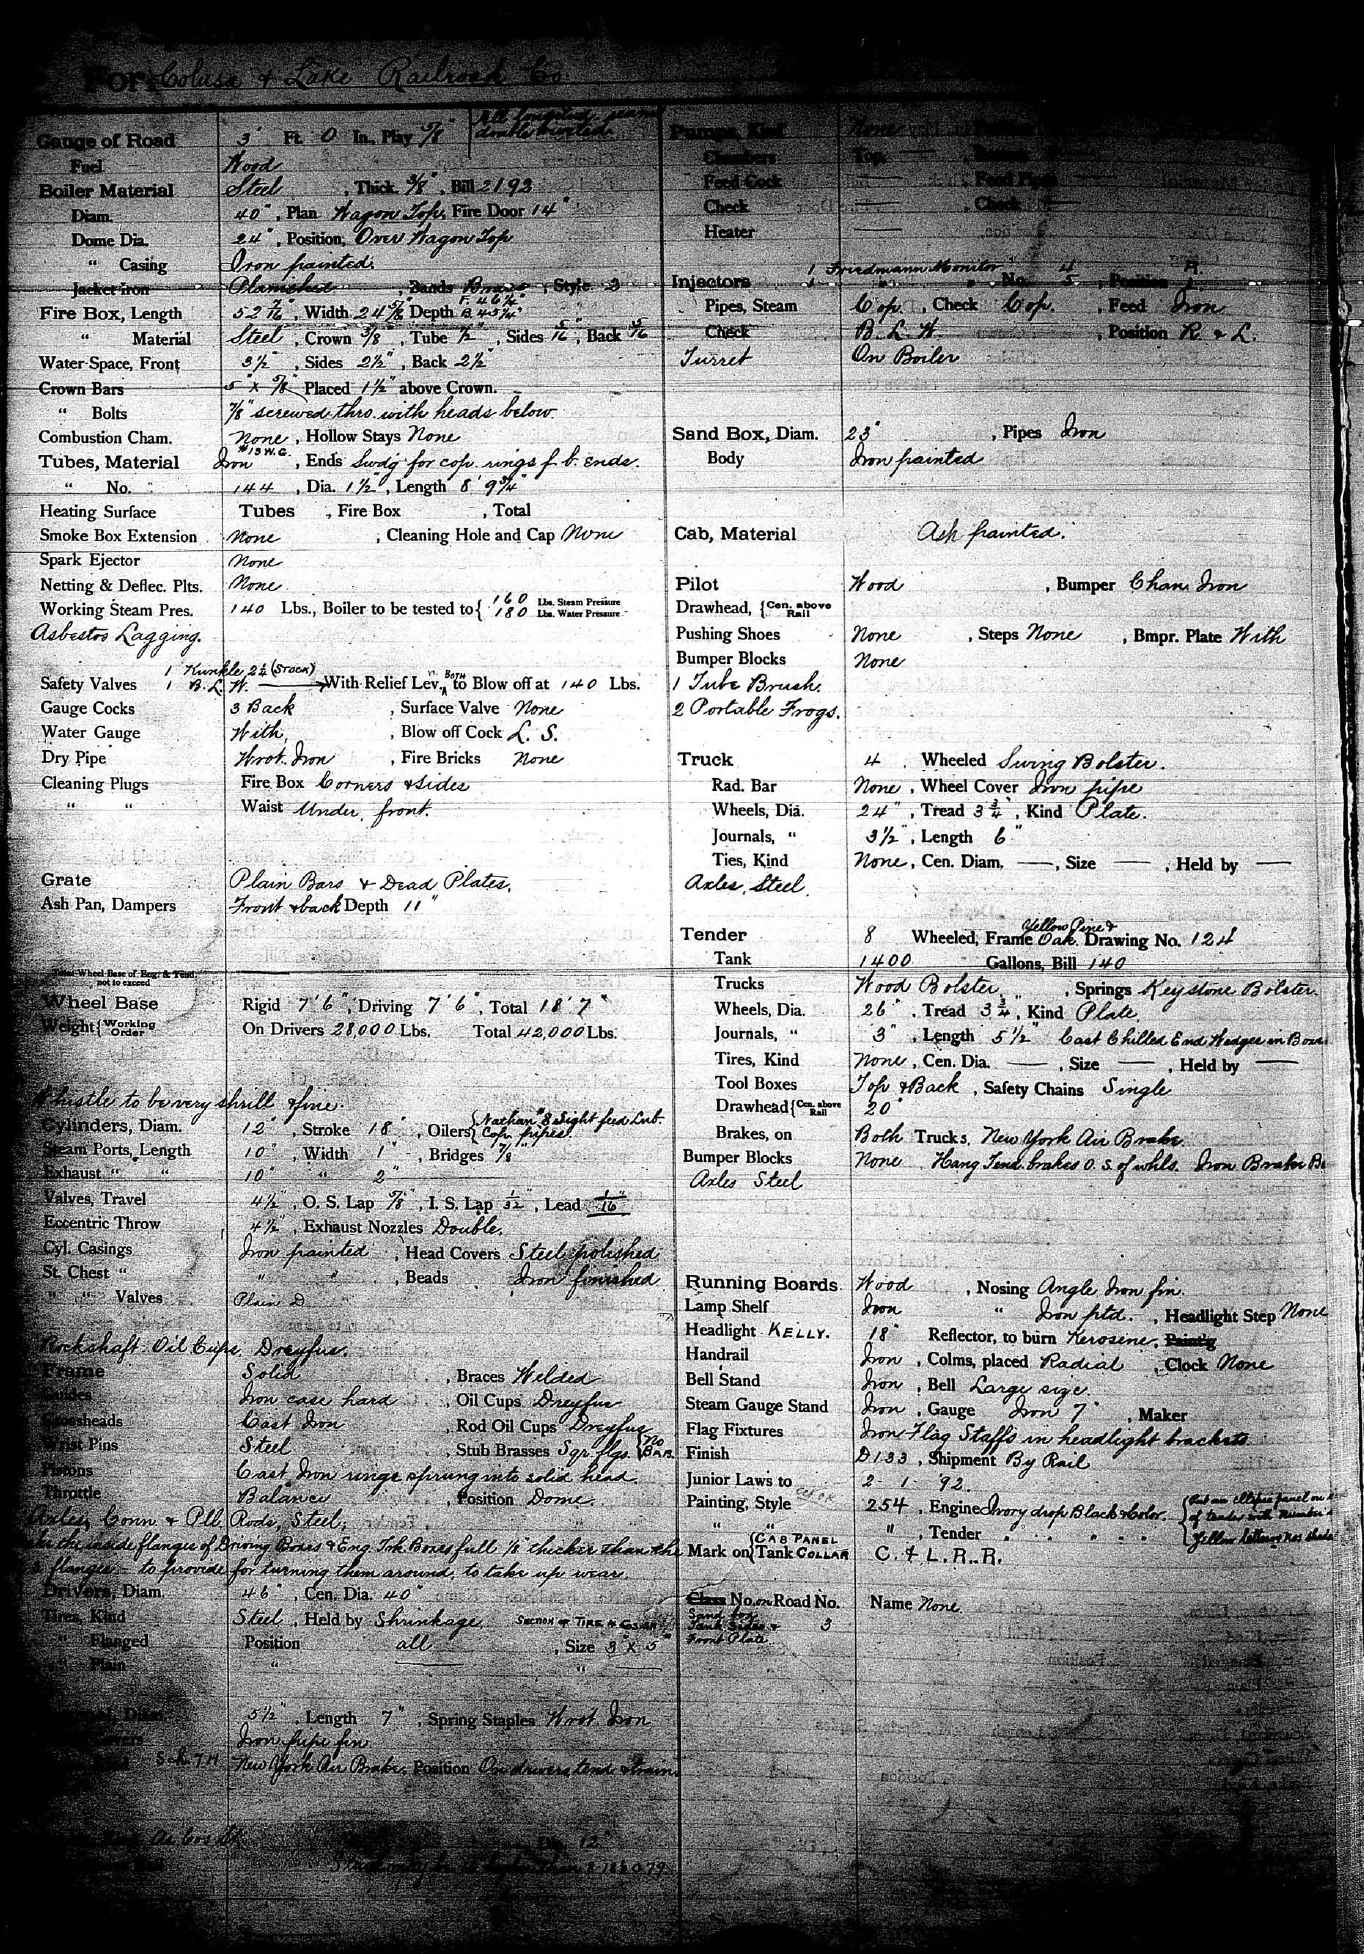 For Colusa & Lake Railroad Co.
Gauge of Road 3 Ft. 0 In., Play 5/8" All longitud. seams double riveted
Fuel Wood
Boiler Material Steel, Thick. 3/8", Bill 2193
Diam. 40", Plan Wagon Top, Fire Door 14"
Dome Dia. 24", Position, Over Wagon Top
" Casing Iron painted.
Jacket iron Planished, Bands Brass, Style 3
Fire Box, Length 52 7/16", Width 24 5/8" Depth F. 46 1/4" B. 45 1/4"
" Material Steel, Crown 3/8", Tube 1/2", Sides 5/16", Back 5/16
Water Space, Front 3 1/2", Sides 2 1/2", Back 2 1/2"
Crown Bars 5" x 5/8" Placed 1 1/2" above Crown.
" Bolts 7/8" screwed thro. with heads below.
Combustion Cham. None, Hollow Stays None
Tubes, Material Iron #13 W.G., Ends Swdg for cop. rings f. b. ends.
" No. 144, Dia. 1 1/2", Length 8' 9 3/4"
Heating Surface Tubes , Fire Box , Total
Smoke Box Extension None, Cleaning Hole and Cap None
Spark Ejector None
Netting & Deflec. Plts. None
Working Steam Pres. 140 Lbs., Boiler to be tested to { 160 Lbs. Steam Pressure 180 Lbs. Water Pressure
Asbestos Lagging.
1 Kunkle 2 1/4 (Stock)
Safety Valves 1 B. L. W. With Relief Lev. in Both to Blow off at 140 Lbs.
Gauge Cocks 3 Back, Surface Valve None
Water Gauge With, Blow off Cock L. S.
Dry Pipe Wrot. Iron, Fire Bricks None
Cleaning Plugs Fire Box Corners & sides
" " Waist Under front.
Grate Plain Bars & Dead Plates.
Ash Pan, Dampers Front & back Depth 11"
Total Wheel Base of Eng. & Tend. not to exceed
Wheel Base Rigid 7' 6", Driving 7' 6", Total 18' 7"
Weight { Working Order On Drivers 28,000 Lbs. Total 42,000 Lbs.
Whistle to be very shrill & fine.
Cylinders, Diam. 12", Stroke 18", Oilers { Nathan #8 Sight feed Lub. Cop. pipes.
Steam Ports, Length 10", Width 1", Bridges 7/8"
Exhaust " " 10" " 2"
Valves, Travel 4 1/2", O. S. Lap 5/8", I. S. Lap 1/32", Lead 1/16"
Eccentric Throw 4 1/2", Exhaust Nozzles Double.
Cyl. Casings Iron painted, Head Covers Steel polished
St. Chest " " ", Beads Iron finished
" " Valves Plain D
Rockshaft Oil Cups Dreyfus.
Frame Solid, Braces Welded
Guides Iron case hard, Oil Cups Dreyfus
Crossheads Cast Iron, Rod Oil Cups Dreyfus
Wrist Pins Steel, Stub Brasses Sqr. flgs. { No Bab.
Pistons Cast Iron rings sprung into solid head.
Throttle Balance, Position Dome.
Axles, Conn & Pll. Rods, Steel.
the inside flanges of Driving Boxes & Eng. Trk. Boxes full 1/8" thicker than the
flanges - to provide for turning them around, to take up wear.
Drivers, Diam. 46", Cen. Dia. 40"
Tires, Kind Steel, Held by Shrinkage
" Flanged Position all, Size 3" x 5"
" Plain " "
5 1/2", Length 7", Spring Staples Wrot Iron
Iron pipe fin
Sch. 7 H New York Air Brake, Position On drivers tend & train.
12"
Pumps, Kind None
Chambers Top.
Feed Cock , Feed Pipes
Check , Check
Heater
Injectors 1 Friedmann Monitor No. 4, Position R.
1 " " 5 L
Pipes, Steam Cop., Check Cop., Feed Iron
Check B. L. W., Position R. & L.
Turret On Boiler
Sand Box, Diam. 23", Pipes Iron
Body Iron painted
Cab, Material Ash painted.
Pilot Wood, Bumper Chan. Iron
Drawhead, { Cen. above Rail
Pushing Shoes None, Steps None, Bmpr. Plate With
Bumper Blocks None
1 Tube Brush.
2 Portable Frogs.
Truck 4 Wheeled Swing Bolster.
Rad. Bar None, Wheel Cover Iron pipe
Wheels, Dia. 24", Tread 3 3/4", Kind Plate.
Journals, " 3 1/2", Length 6"
Ties, Kind None, Cen. Diam. —, Size —, Held by —
Axles, Steel.
Tender 8 Wheeled, Frame Yellow Pine & Oak. Drawing No. 124
Tank 1400 Gallons, Bill 140
Trucks Wood Bolster, Springs Keystone Bolster.
Wheels, Dia. 26", Tread 3 3/4", Kind Plate
Journals, " 3", Length 5 1/2" Cast Chilled End Wedges in Boxes
Tires, Kind None, Cen. Dia. —, Size —, Held by —
Tool Boxes Top & Back, Safety Chains Single
Drawhead { Cen. above Rail 20"
Brakes, on Both Trucks, New York Air Brake.
Bumper Blocks None Hang Tend. brakes O. S. of whls. Iron Brake
Axles Steel
Running Boards Wood, Nosing Angle Iron fin.
Lamp Shelf Iron " Iron ptd., Headlight Step None
Headlight KELLY. 18" Reflector, to burn Kerosene, Paint'g
Handrail Iron, Colms, placed Radial, Clock None
Bell Stand Iron, Bell Large size.
Steam Gauge Stand Iron, Gauge Iron 7", Maker
Flag Fixtures Iron Flag Staffs in headlight brackets
Finish D133, Shipment By Rail
Junior Laws to 2 - 1 - '92.
Painting, Style 254, Engine Ivory drop Black & Color. { Put an ellipse panel on
" " ", Tender " " " " of tender with number
Yellow lettering not shaded
Mark on { CAB PANEL Tank COLLAR C. & L. R. R.
Class No. on Road No. Name None
Sand box 3
Tank Sides &
Front Plate